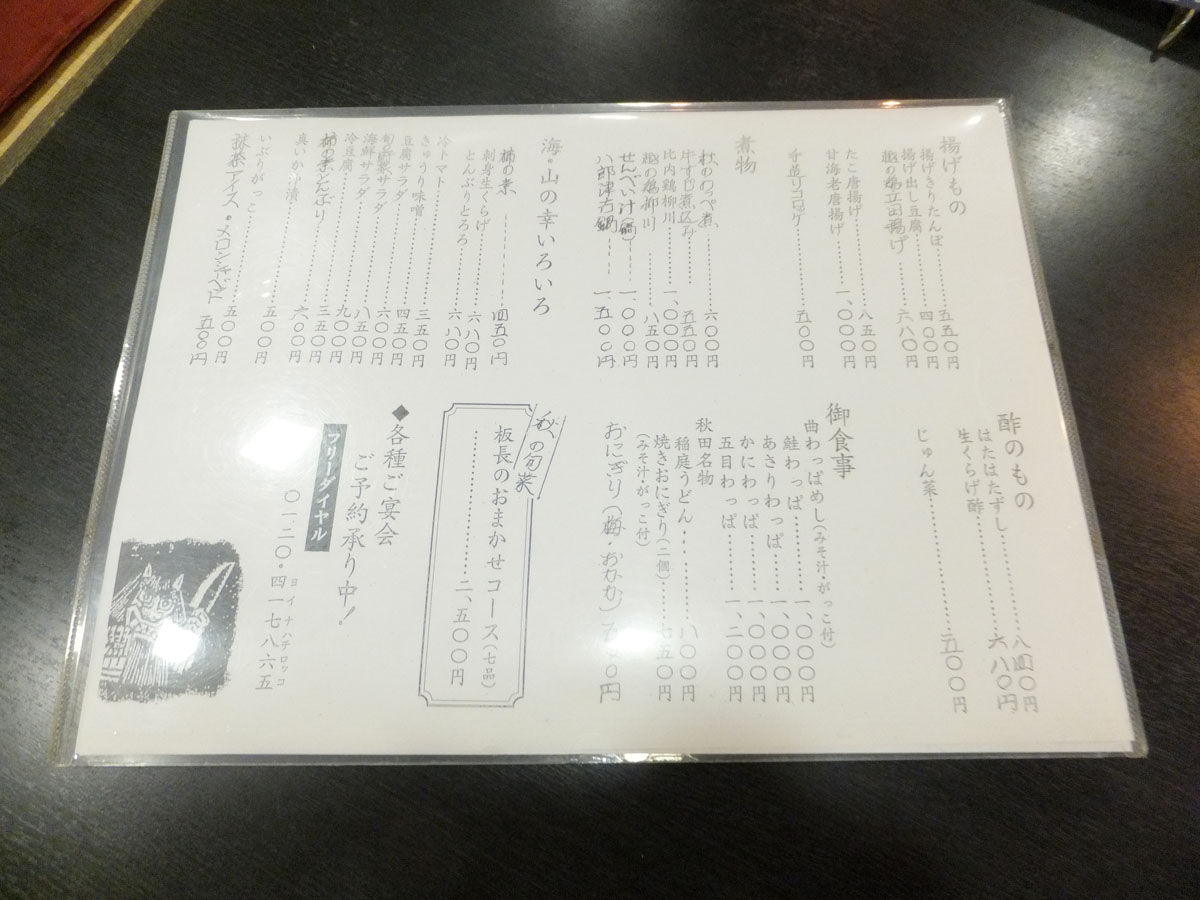 揚げもの
揚げきりたんぽ………五五〇円
揚げ出し豆腐………四〇〇円
立田揚げ……六八〇円
たこ唐揚げ………八五〇円
甘海老唐揚げ……一、〇〇〇円
手造りコロッケ……五〇〇円
煮物
のっぺ煮………六〇〇円
牛すじ煮込み……五五〇円
比内鶏柳川………一、〇〇〇円
柳川………八五〇円
せんべい汁(鍋)……一、〇〇〇円
八郎津方鍋……一五〇〇円
海・山の幸いろいろ
柿の素………四五〇円
刺身生くらげ………六八〇円
とんぶりとろろ………六八〇円
冷トマト
きゅうり味噌………三五〇円
豆腐サラダ………四五〇円
サラダ………六〇〇円
海鮮サラダ………八五〇円
冷豆腐………九〇〇円
三五〇円
真いか 漬………六〇〇円
いぶりがっこ………五〇〇円
抹茶アイス・メロンシャーベット 五〇〇円
酢のもの
はたはたずし………八四〇円
生くらげ酢………六八〇円
じゅん菜………五〇〇円
御食事
曲わっぱめし(みそ汁・がっこ付)
鮭わっぱ………一、〇〇〇円
あさりわっぱ………一、〇〇〇円
かにわっぱ………一、〇〇〇円
五目わっぱ………一、二〇〇円
秋田名物
稲庭うどん………八〇〇円
焼きおにぎり(二個)………七五〇円
(みそ汁・がっこ付)
おにぎり(梅・おかか)五〇〇円
秋の旬菜
板長のおまかせコース(七品)
………二、五〇〇円
◆各種ご宴会
ご予約承り中!
フリーダイヤル
ヨイナハチロッコ
〇一二〇・四一七八六五